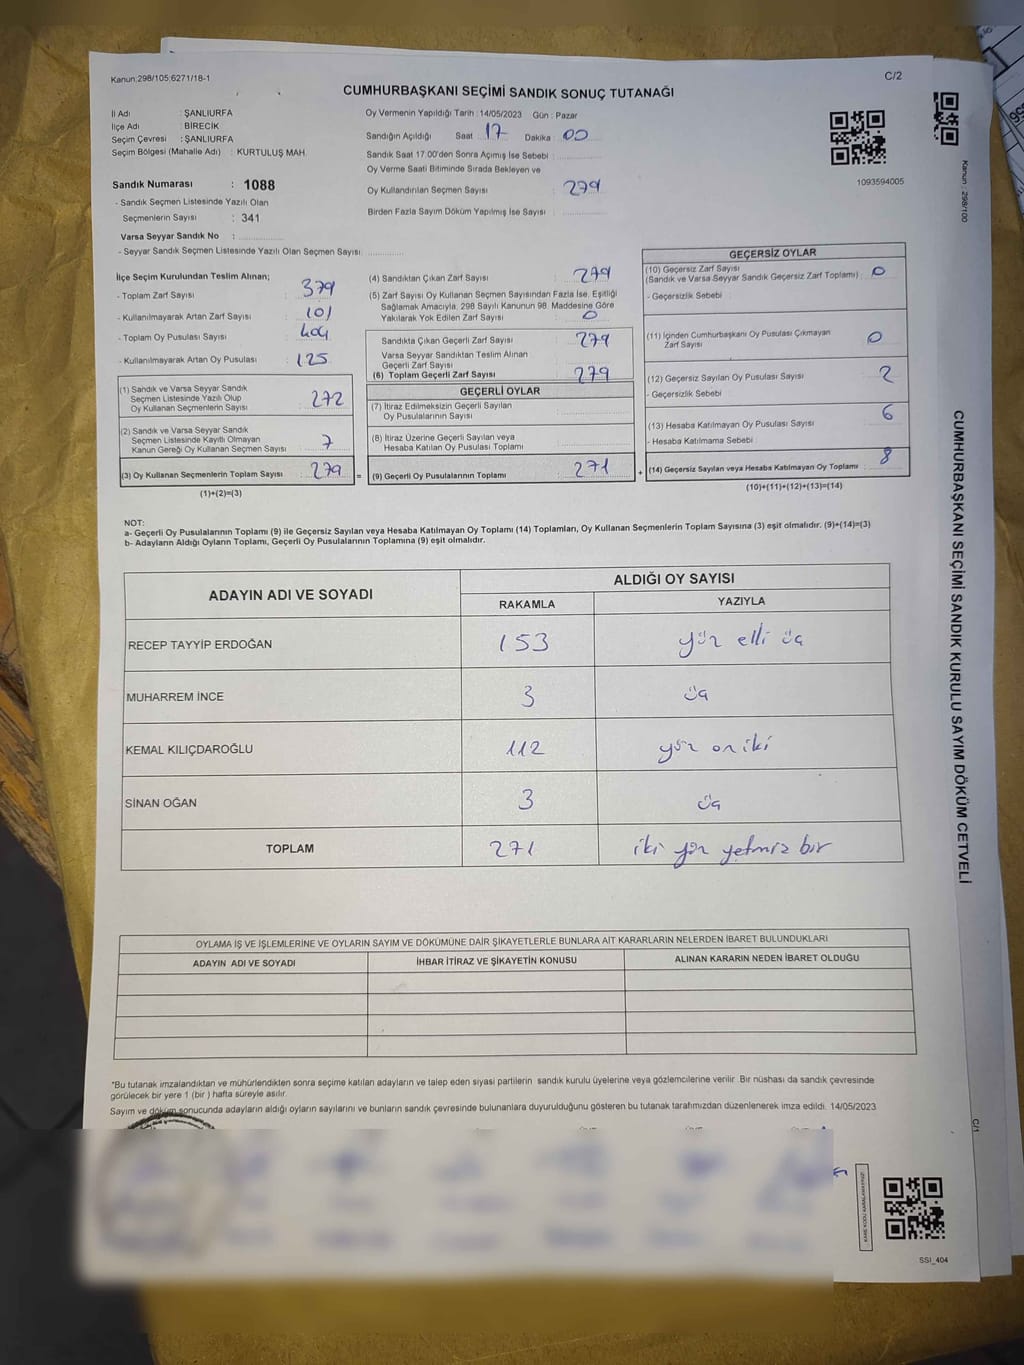 Kanun:298/105;6271/18-1
C/2
CUMHURBAŞKANI SEÇİMİ SANDIK SONUÇ TUTANAĞI
İl Adı : ŞANLIURFA
İlçe Adı : BİRECİK
Seçim Çevresi : ŞANLIURFA
Seçim Bölgesi (Mahalle Adı) : KURTULUŞ MAH.
Sandık Numarası : 1088
- Sandık Seçmen Listesinde Yazılı Olan
Seçmenlerin Sayısı : 341
Varsa Seyyar Sandık No :
- Seyyar Sandık Seçmen Listesinde Yazılı Olan Seçmen Sayısı :
Oy Vermenin Yapıldığı Tarih : 14/05/2023 Gün : Pazar
Sandığın Açıldığı Saat 17 Dakika : 00
Sandık Saat 17.00'den Sonra Açımış İse Sebebi :
Oy Verme Saati Bitiminde Sırada Bekleyen ve
Oy Kullandırılan Seçmen Sayısı : 279
Birden Fazla Sayım Döküm Yapılmış İse Sayısı :
1093594005
İlçe Seçim Kurulundan Teslim Alınan;
- Toplam Zarf Sayısı : 379
- Kullanılmayarak Artan Zarf Sayısı : 101
- Toplam Oy Pusulası Sayısı : 404
- Kullanılmayarak Artan Oy Pusulası : 125
(1) Sandık ve Varsa Seyyar Sandık
Seçmen Listesinde Yazılı Olup
Oy Kullanan Seçmenlerin Sayısı : 272
(2) Sandık ve Varsa Seyyar Sandık
Seçmen Listesinde Kayıtlı Olmayan
Kanun Gereği Oy Kullanan Seçmen Sayısı : 7
(3) Oy Kullanan Seçmenlerin Toplam Sayısı : 279 =
(1)+(2)=(3)
(4) Sandıktan Çıkan Zarf Sayısı : 279
(5) Zarf Sayısı Oy Kullanan Seçmen Sayısından Fazla İse, Eşitliği
Sağlamak Amacıyla, 298 Sayılı Kanunun 98. Maddesine Göre
Yakılarak Yok Edilen Zarf Sayısı : 0
Sandıkta Çıkan Geçerli Zarf Sayısı : 279
Varsa Seyyar Sandıktan Teslim Alınan
Geçerli Zarf Sayısı :
(6) Toplam Geçerli Zarf Sayısı : 279
GEÇERLİ OYLAR
(7) İtiraz Edilmeksizin Geçerli Sayılan
Oy Pusulalarının Sayısı :
(8) İtiraz Üzerine Geçerli Sayılan veya
Hesaba Katılan Oy Pusulası Toplamı :
(9) Geçerli Oy Pusulalarının Toplamı : 271 +
GEÇERSİZ OYLAR
(10) Geçersiz Zarf Sayısı
(Sandık ve Varsa Seyyar Sandık Geçersiz Zarf Toplamı) : 0
- Geçersizlik Sebebi :
(11) İçinden Cumhurbaşkanı Oy Pusulası Çıkmayan
Zarf Sayısı : 0
(12) Geçersiz Sayılan Oy Pusulası Sayısı : 2
- Geçersizlik Sebebi :
(13) Hesaba Katılmayan Oy Pusulası Sayısı : 6
- Hesaba Katılmama Sebebi :
(14) Geçersiz Sayılan veya Hesaba Katılmayan Oy Toplamı : 8
(10)+(11)+(12)+(13)=(14)
NOT:
a- Geçerli Oy Pusulalarının Toplamı (9) ile Geçersiz Sayılan veya Hesaba Katılmayan Oy Toplamı (14) Toplamları, Oy Kullanan Seçmenlerin Toplam Sayısına (3) eşit olmalıdır. (9)+(14)=(3)
b- Adayların Aldığı Oyların Toplamı, Geçerli Oy Pusulalarının Toplamına (9) eşit olmalıdır.
ADAYIN ADI VE SOYADI ALDIĞI OY SAYISI
RAKAMLA YAZIYLA
RECEP TAYYİP ERDOĞAN 153 yüz elli üç
MUHARREM İNCE 3 üç
KEMAL KILIÇDAROĞLU 112 yüz on iki
SİNAN OĞAN 3 üç
TOPLAM 271 iki yüz yetmiz bir
OYLAMA İŞ VE İŞLEMLERİNE VE OYLARIN SAYIM VE DÖKÜMÜNE DAİR ŞİKAYETLERLE BUNLARA AİT KARARLARIN NELERDEN İBARET BULUNDUKLARI
ADAYIN ADI VE SOYADI İHBAR İTİRAZ VE ŞİKAYETİN KONUSU ALINAN KARARIN NEDEN İBARET OLDUĞU
*Bu tutanak imzalandıktan ve mühürlendikten sonra seçime katılan adayların ve talep eden siyasi partilerin sandık kurulu üyelerine veya gözlemcilerine verilir. Bir nüshası da sandık çevresinde
görülecek bir yere 1 (bir) hafta süreyle asılır.
Sayım ve döküm sonucunda adayların aldığı oyların sayılarını ve bunların sandık çevresinde bulunanlara duyurulduğunu gösteren bu tutanak tarafımızdan düzenlenerek imza edildi. 14/05/2023
SSİ_404
Kanun : 298/100
CUMHURBAŞKANI SEÇİMİ SANDIK KURULU SAYIM DÖKÜM CETVELİ
C/1